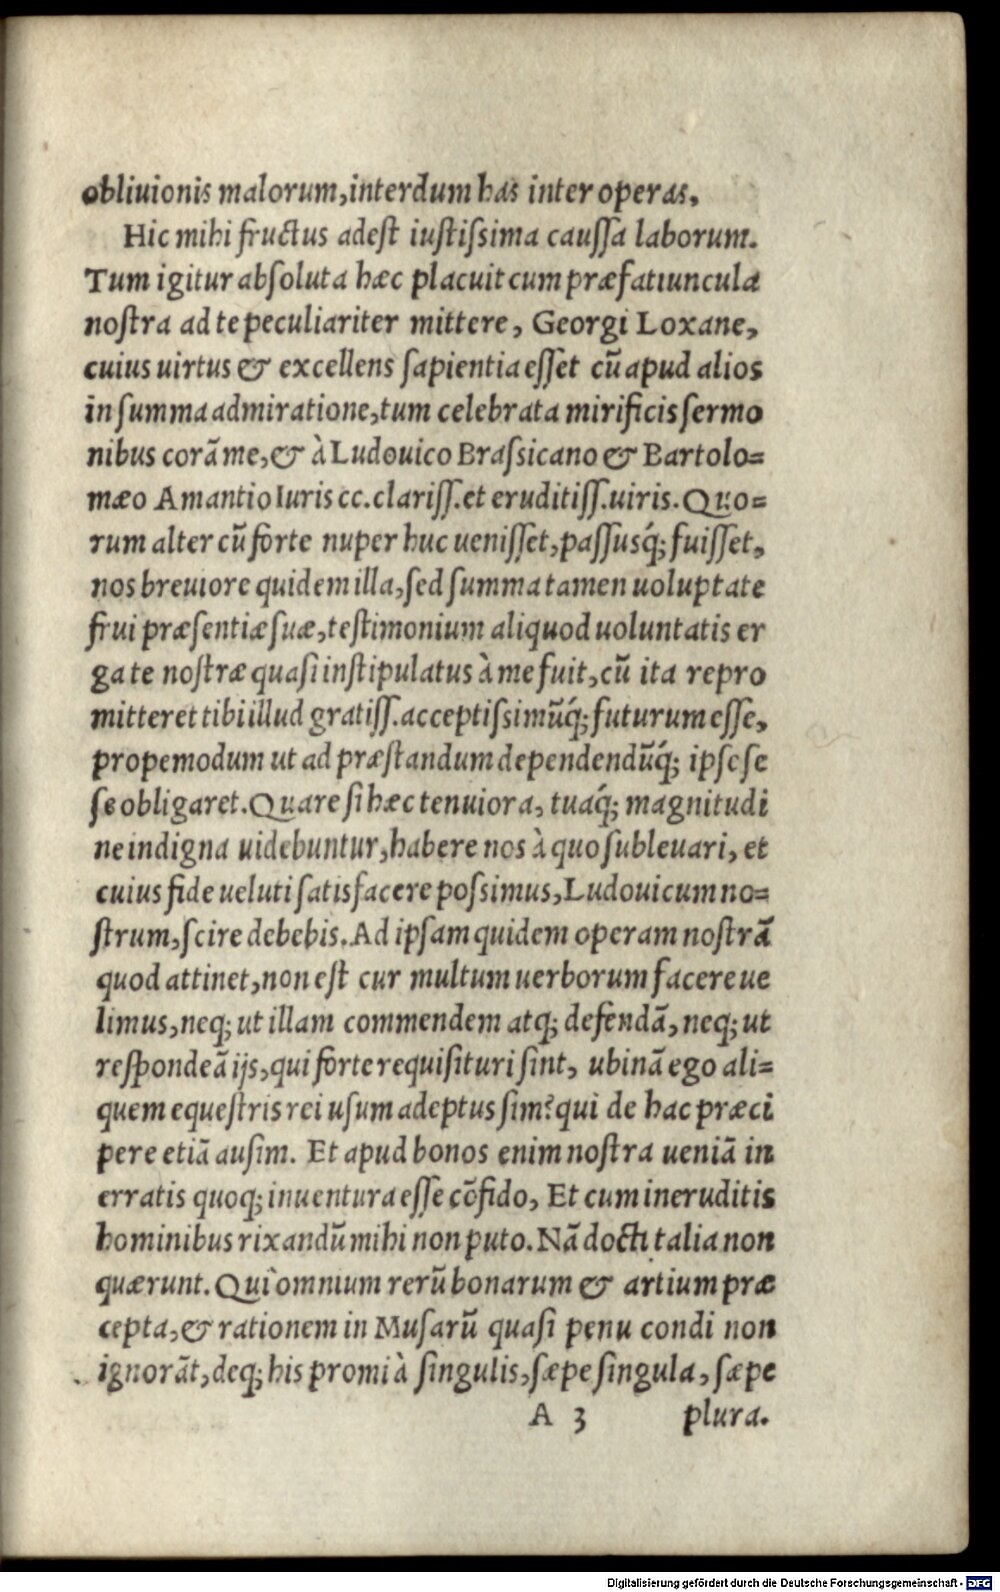 obliuionis malorum,interdum has inter operas.
Hic mihi fructus adest iustiſsima cauſſa laborum.
Tum igitur abſoluta hæc placuit cum præfatiuncula
noſtra ad te peculiariter mittere, Georgi Loxane,
cuius uirtus & excellens ſapientia eſſet cū apud alios
in ſumma admiratione,tum celebrata mirificis ſermo
nibus corā me,& à Ludouico Braſsicano & Bartolo=
mæo Amantio Iuris cc.clariſſ.et eruditiſſ.uiris.Quo=
rum alter cū forte nuper huc ueniſſet,paſſusq́; fuiſſet,
nos breuiore quidem illa,ſed ſumma tamen uoluptate
frui præſentiæ ſuæ,teſtimonium aliquod uoluntatis er
ga te noſtræ quaſi inſtipulatus à me fuit,cū ita repro
mitteret tibi illud gratiſſ.acceptiſsimūq́; futurum eſſe,
propemodum ut ad præſtandum dependendūq́; ipſe ſe
ſe obligaret.Quare ſi hæc tenuiora, tuaq́; magnitudi
ne indigna uidebuntur,habere nos à quo ſubleuari, et
cuius fide ueluti ſatisfacere poſsimus,Ludouicum no=
ſtrum,ſcire debebis.Ad ipſam quidem operam noſtrā
quod attinet,non eſt cur multum uerborum facere ue
limus,neq; ut illam commendem atq; defendā,neq; ut
reſpondeā ijs,qui forte requiſituri ſint, ubinā ego ali=
quem equeſtris rei uſum adeptus ſim?qui de hac præci
pere etiā auſim. Et apud bonos enim noſtra ueniā in
erratis quoq; inuentura eſſe cōfido, Et cum ineruditis
hominibus rixandū mihi non puto.Nā docti talia non
quærunt.Qui omnium rerū bonarum & artium præ
cepta,& rationem in Muſarū quaſi penu condi non
ignorāt,deq; his promi à ſingulis,ſæpe ſingula, ſæpe
A 3 plura.
Digitalisierung gefördert durch die Deutsche Forschungsgemeinschaft - DFG